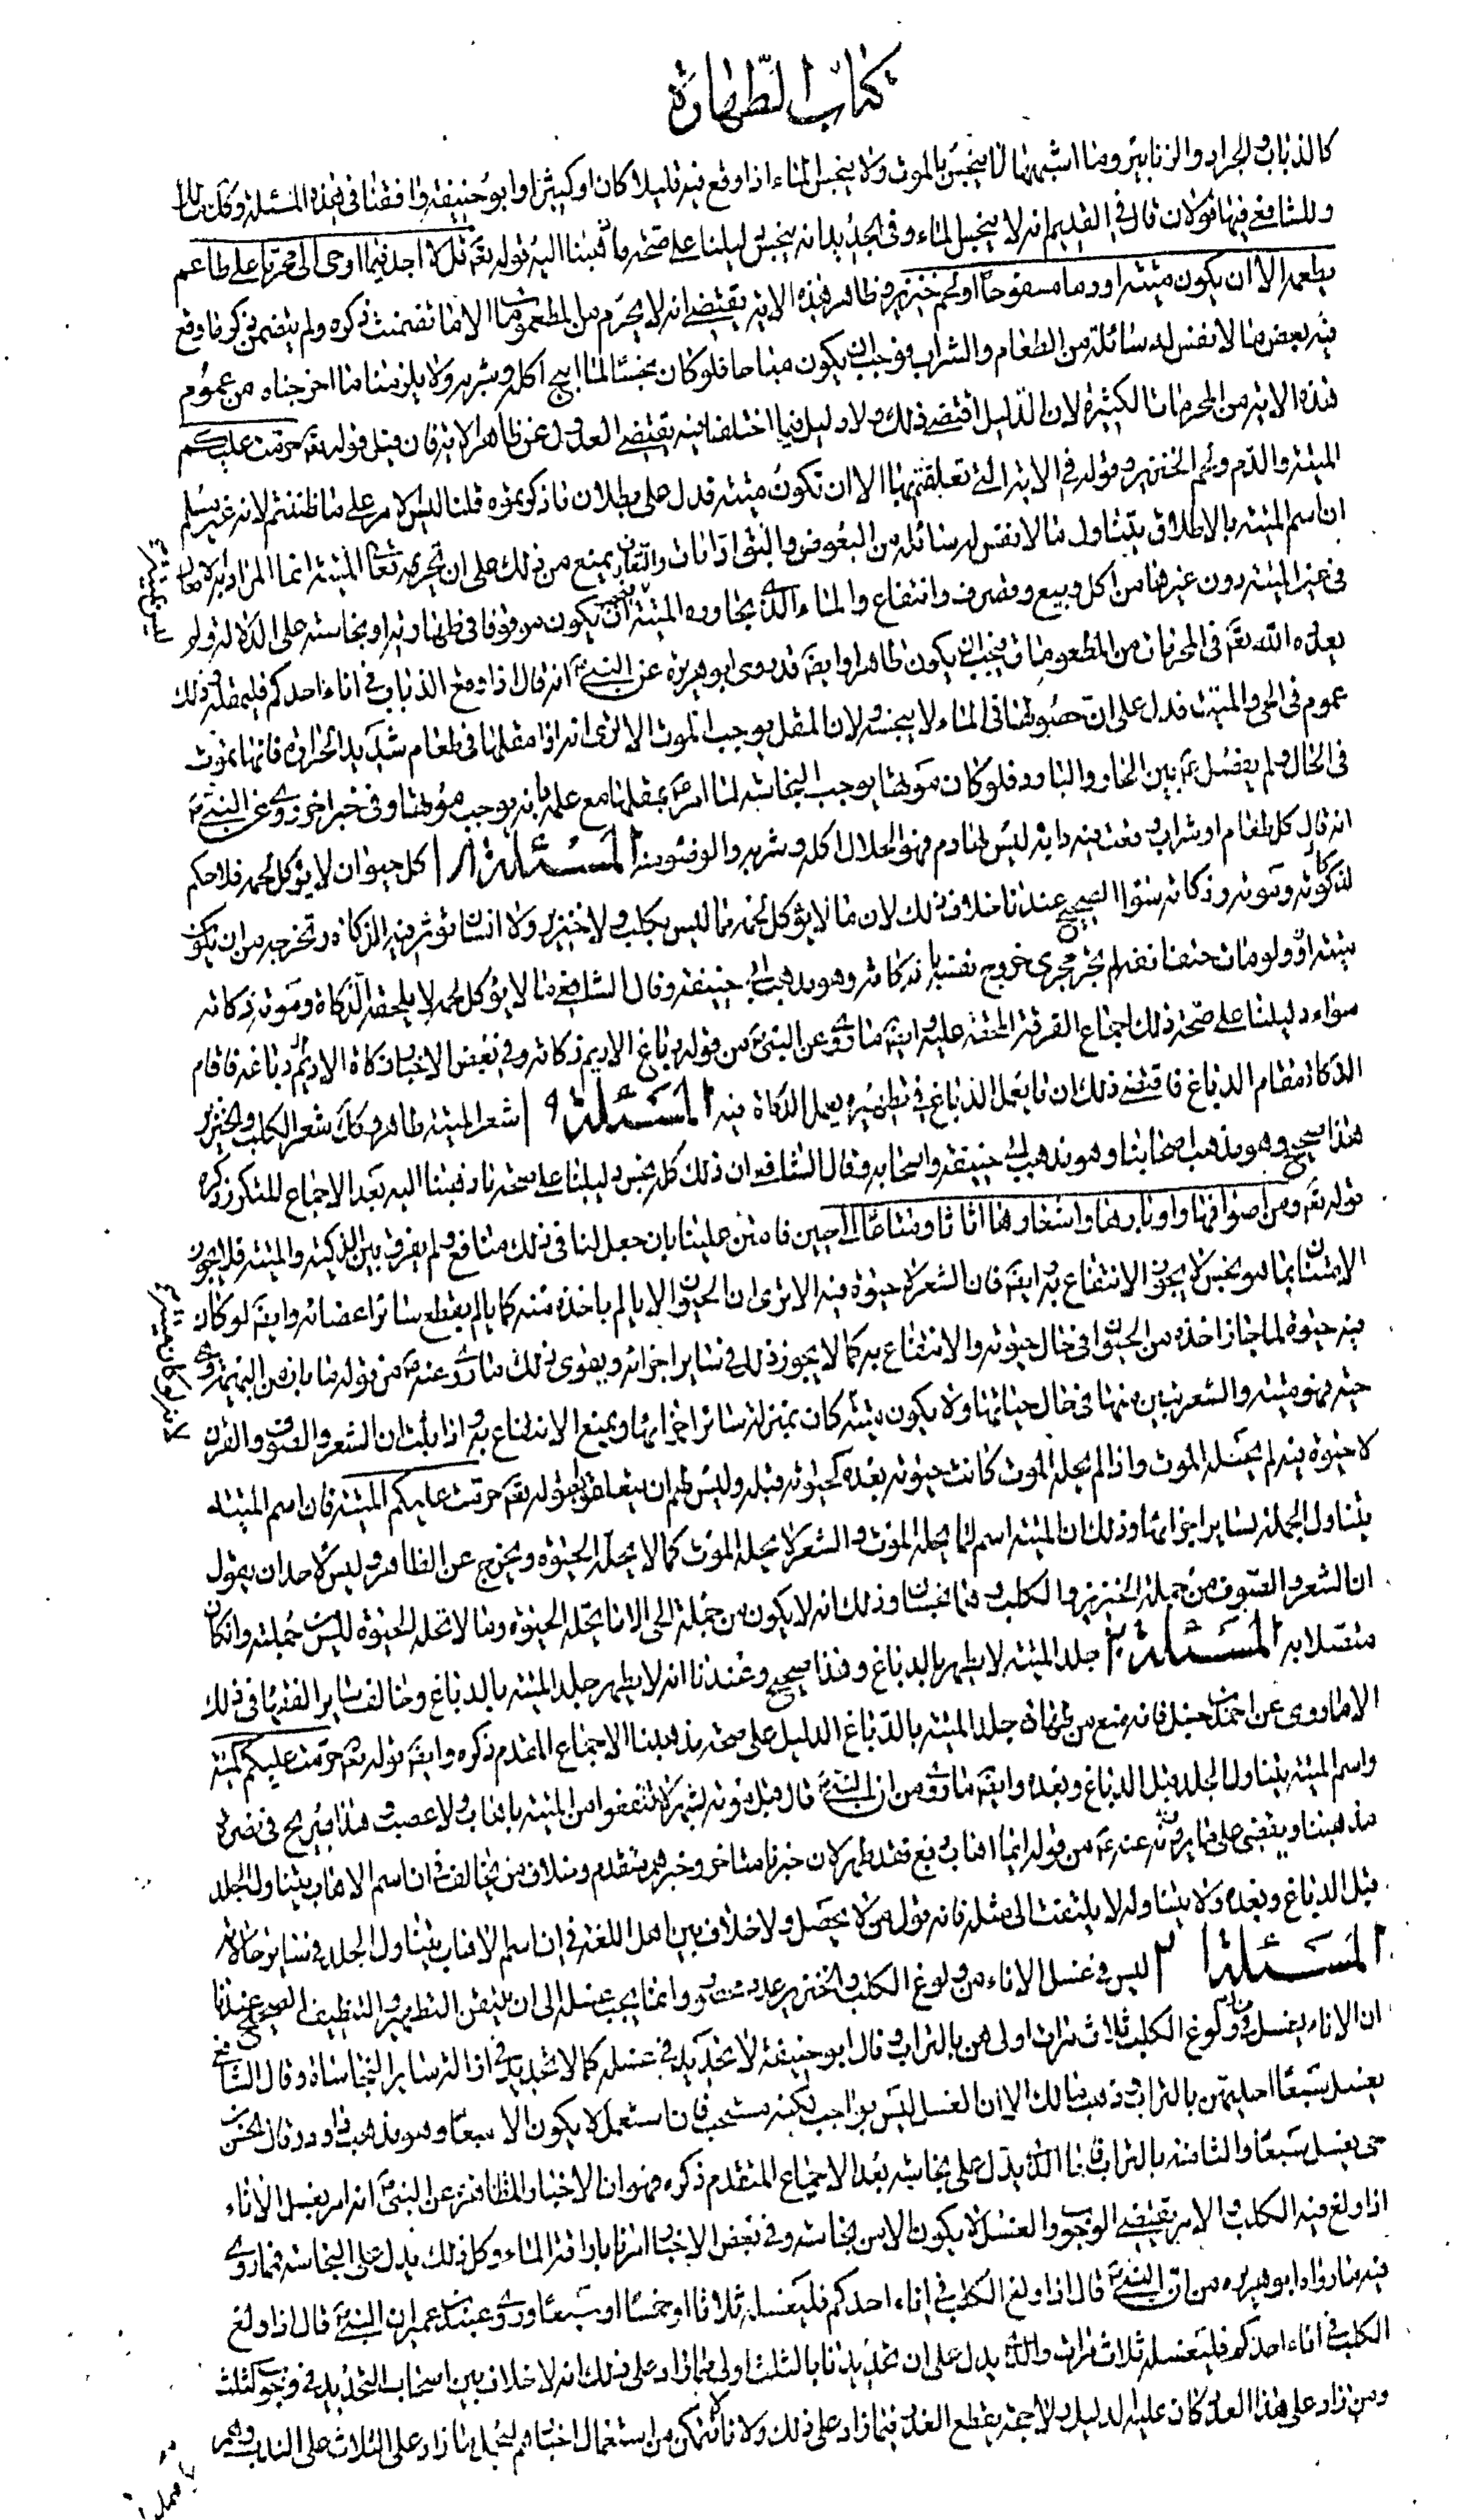 كتاب الطهارة
كالذباب والجراد والزنابير وما اشبهها لا ينجس بالموت ولا ينجس الماء اذا وقع فيه قليلا كان او كثيرا وابو حنيفة وافقنا في هذه المسئلة وكذلك مالك
وللشافعي فيها قولان قال في القديم انه لا ينجس الماء وفي الجديد انه ينجس دليلنا على صحة ما ذهبنا اليه قوله تعم قل لا اجد فيما اوحى الى محرما على طاعم
يطعمه الا ان يكون ميتة او دما مسفوحا او لحم خنزير وظاهر هذه الاية يقتضي انه لا يحرم من المطعومات الا ما تضمنت ذكره ولم يتضمن ذكر ما وقع
فيه بعض ما لا نفس له سائلة من الطعام والشراب فوجب ان يكون مباحا فلو كان نجسا لما ابيح اكله وشربه ولا يلزمنا ما اخرجناه من عموم
هذه الاية من المحرمات الكثيرة لان الدليل اقتضى ذلك ولا دليل فيما اختلفنا فيه يقتضي العدول عن ظاهر الاية فان قيل قوله تعم حرمت عليكم
الميتة والدم ولحم الخنزير وقوله في الاية التي تعلقتم بها الا ان تكون ميتة فدل على بطلان ما ذكرتموه قلنا ليس الامر على ما ظننتم لانه غير مسلم
ان اسم الميتة بالاطلاق يتناول ما لا نفس له سائلة من البعوض والبق اذا مات والتعارف يمنع من ذلك على ان تحريمه تعالى الميتة انما المراد به الافعال
في عين الميتة دون غيرها من اكل وبيع وتصرف وانتفاع والماء الذي تجاوره الميتة يكون موقوفا في طهارته او نجاسته على الدلالة ولم
يعده الله تعم في المحرمات من المطعومات فيجب ان يكون طاهرا وايضم قد روى ابو هريرة عن النبي ص انه قال اذا وقع الذباب في اناء احدكم فليمقله وذلك
عموم في الحي والميت فدل على ان حصولها في الماء لا ينجسه ولان المقل يوجب الموت الا ترى انه اذا مقلها في طعام شديد الحرارة فانها تموت
في الحال ولم يفصل ع بين الحار والبارد فلو كان موتها يوجب النجاسة لما امر ع بمقلها مع علمه بانه يوجب موتها وفي خبر اخر روى عن النبي ص
انه قال كل طعام او شراب وقعت فيه دابة ليس لها دم فهو الحلال اكله وشربه والوضوء منه المسئلة ١٨ كل حيوان لا يؤكل لحمه فلا حكم
لذكاته وموته وذكاته سواء الصحيح عندنا خلاف ذلك لان ما لا يؤكل لحمه مما ليس بكلب ولا خنزير ولا انسان تؤثر فيه الذكاة وتخرجه من ان يكون
ميتة ولو مات حتف انفه لم يجر مجرى خروج نفسه بذكاته وهو مذهب ابي حنيفة وقال الشافعي ما لا يؤكل لحمه لا يلحقه الذكاة وموته وذكاته
سواء دليلنا على صحة ذلك اجماع الفرقة المحقة عليه وايضم ما روى عن النبي ص من قوله دباغ الاديم ذكاته وفي بعض الاخبار ذكاة الاديم دباغه فاقام
الذكاة مقام الدباغ فاقتضى ذلك ان ما يعمل الدباغ في تطهيره يعمل الذكاة فيه المسئلة ١٩ شعر الميتة طاهر وكذلك شعر الكلب والخنزير
هذا صحيح وهو مذهب اصحابنا وهو مذهب ابي حنيفة واصحابه وقال الشافعي ان ذلك كله نجس دليلنا على صحة ما ذهبنا اليه بعد الاجماع المتكرر ذكره
قوله تعم ومن اصوافها واوبارها واشعارها اثاثا ومتاعا الى حين فامتن علينا بان جعل لنا في ذلك منافع ولم يفرق بين الذكية والميتة فلا يجوز
الامتنان بما هو نجس لا يجوز الانتفاع به وايضم فان الشعر لا حيوة فيه الا ترى ان الحيوان لا يالم باخذه منه كما يالم بقطع سائر اعضائه وايضم لو كان
فيه حيوة لما جاز اخذه من الحيوان في حال حيوته والانتفاع به كما لا يجوز ذلك في سائر اجزائه ويقوى ذلك ما روى عنه ع من قوله ما بان من البهيمة وهي
حية فهو ميتة والشعر يبين منها في حال حياتها ولا يكون ميتة كان بمنزلة سائر اجزائها ويمنع الانتفاع به واذا ثبت ان الشعر والصوف والقرن
لا حيوة فيه لم يحله الموت واذا لم يحله الموت كانت حيوته بعده كحيوته قبله وليس لهم ان يتعلقوا بقوله تعم حرمت عليكم الميتة فان اسم الميتة
يتناول الجملة بسائر اجزائها وذلك ان الميتة اسم لما يحله الموت والشعر لا يحله الموت كما لا يحله الحيوة ويخرج عن الظاهر وليس لاحد ان يقول
ان الشعر والصوف من جملة الخنزير والكلب وهما نجسان وذلك انه لا يكون من جملة الحي الا ما يحله الحيوة وما لا تحله الحيوة ليس من جملته وان كان
متصلا به المسئلة ٢٠ جلد الميتة لا يطهر بالدباغ وهذا صحيح وعندنا انه لا يطهر جلد الميتة بالدباغ وخالف سائر الفقهاء في ذلك
الا ما روى عن احمد بن حنبل فانه منع من طهارة جلد الميتة بالدباغ الدليل على صحة مذهبنا الاجماع المقدم ذكره وايضم قوله تعم حرمت عليكم الميتة
واسم الميتة يتناول الجلد قبل الدباغ وبعده وايضم ما روى من ان النبي ص قال قبل موته بشهر لا تنتفعوا من الميتة باهاب ولا عصب وهذا صريح في نصرة
مذهبنا ويقضي على ما يروونه عنه ع من قوله ايما اهاب دبغ فقد طهر لان خبرنا متاخر وخبرهم متقدم وخلاف من يخالف في ان اسم الاهاب يتناول الجلد
قبل الدباغ وبعده ولا يتناوله لا يلتفت الى مثله فانه قول من لا يحصل ولا خلاف بين اهل اللغة في ان اسم الاهاب يتناول الجلد في سائر حالاته
المسئلة ٢١ ليس في غسل الاناء من ولوغ الكلب والخنزير عدد محدود وانما يجب غسله الى ان يتيقن التطهير والتنظيف الصحيح عندنا
ان الاناء يغسل من ولوغ الكلب ثلاث مرات اولى هن بالتراب وقال ابو حنيفة لا تحديد في غسله كما لا تحديد في ازالة سائر النجاسات وقال الشافعي
يغسل سبعا احديهن بالتراب وذهب مالك الا ان الغسل ليس بواجب لكنه مستحب فان استعمل لا يكون الا سبعا وهو مذهب داود وقال الحسن
حى يغسل سبعا والثامنة بالتراب فاما الذي يدل على نجاسته بعد الاجماع المتقدم ذكره فهو ان الاخبار المتظافرة عن النبي ص انه امر بغسل الاناء
اذا ولغ فيه الكلب والامر يقتضي الوجوب والغسل لا يكون الا من نجاسة وفي بعض الاخبار امرنا باراقة الماء وكل ذلك يدل على النجاسة فما روى
فيه ما رواه ابو هريرة من ان النبي ص قال اذا ولغ الكلب في اناء احدكم فليغسله ثلاثا او خمسا او سبعا وروى عبيد بن عمير ان النبي ص قال اذا ولغ
الكلب في اناء احدكم فليغسله ثلاث مرات والذي يدل على ان تحديدنا بالثلث اولى مما زاد على ذلك انه لا خلاف بين اصحاب التحديد في وجوب الثلث
ومن زاد على هذا العدد كان عليه الدليل ولا حجة يقطع العذر فيما زاد على ذلك ولانا نتمكن من استعمال اخبارهم لنحمل ما زاد على الثلاث على الندب وهم